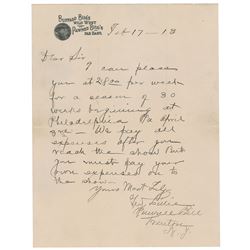 BUFFALO BILL'S
WILD WEST
PAWNEE BILL'S
FAR EAST.
Feb 17 - 13
Dear Sir
I can place
you at 28.00 per week
for a season of 30
weeks beginning at
Philadelphia Pa april
3rd - We pay all
expenses after you
reach the show But
you must pay your
own expenses on to
the show -
Yours Most Tly
Pawnee Bill